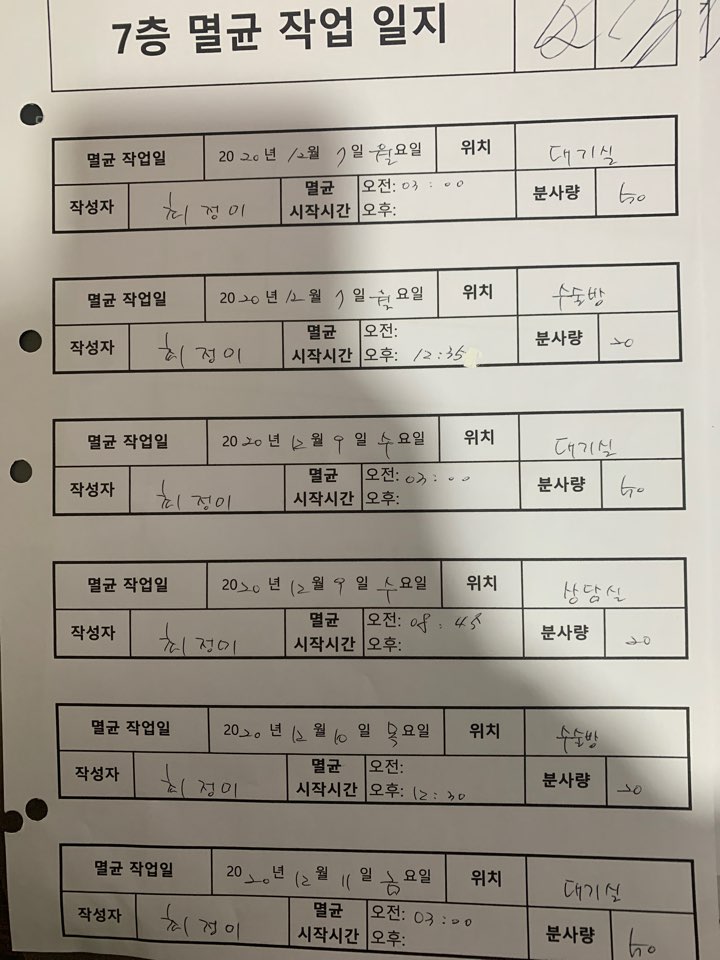 7층 멸균 작업 일지
멸균 작업일 2020년 12월 7일 월요일 위치 대기실
작성자 최정미 멸균 시작시간 오전: 03:00 오후: 분사량 50
멸균 작업일 2020년 12월 7일 월요일 위치 수술방
작성자 최정미 멸균 시작시간 오전: 오후: 12:35 분사량 20
멸균 작업일 2020년 12월 9일 수요일 위치 대기실
작성자 최정미 멸균 시작시간 오전: 03:00 오후: 분사량 50
멸균 작업일 2020년 12월 9일 수요일 위치 상담실
작성자 최정미 멸균 시작시간 오전: 08:45 오후: 분사량 20
멸균 작업일 2020년 12월 10일 목요일 위치 수술방
작성자 최정미 멸균 시작시간 오전: 오후: 12:30 분사량 20
멸균 작업일 2020년 12월 11일 금요일 위치 대기실
작성자 최정미 멸균 시작시간 오전: 03:00 오후: 분사량 50